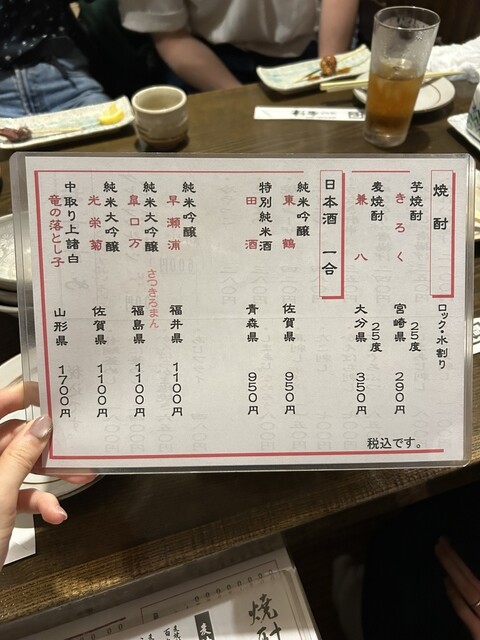 焼酎 ロック・水割り
芋焼酎 きろく 宮崎県 25度 290円
麦焼酎 兼八 大分県 25度 350円
日本酒 一合
純米吟醸 東鶴 佐賀県 950円
特別純米酒 田酒 青森県 950円
純米吟醸 早瀬浦 福井県 1100円
さつきろまん
純米大吟醸 皐口万 福島県 1100円
純米大吟醸 光栄菊 佐賀県 1100円
中取り上諸白 竜の落とし子 山形県 1700円
税込です。
焼酎